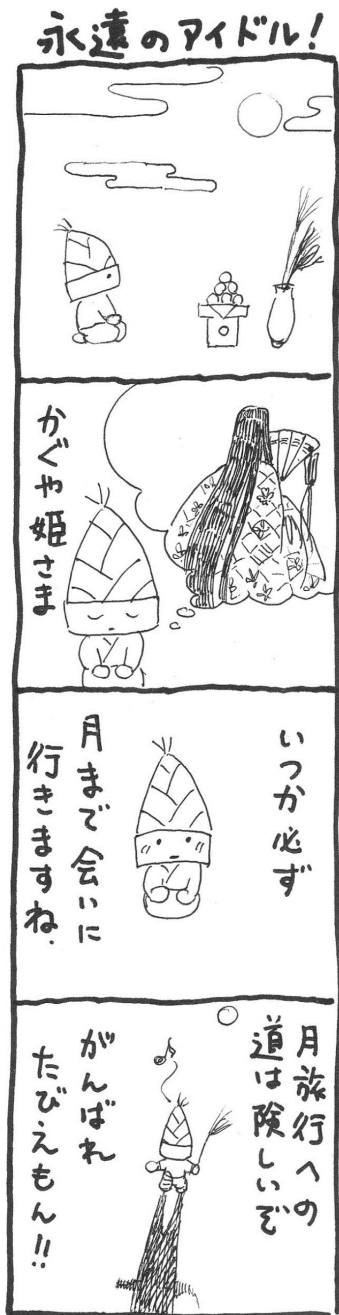 永遠のアイドル!
かぐや姫さま
いつか必ず
月まで会いに
行きますね.
月旅行への
道は険しいぞ
がんばれ
たびえもん!!